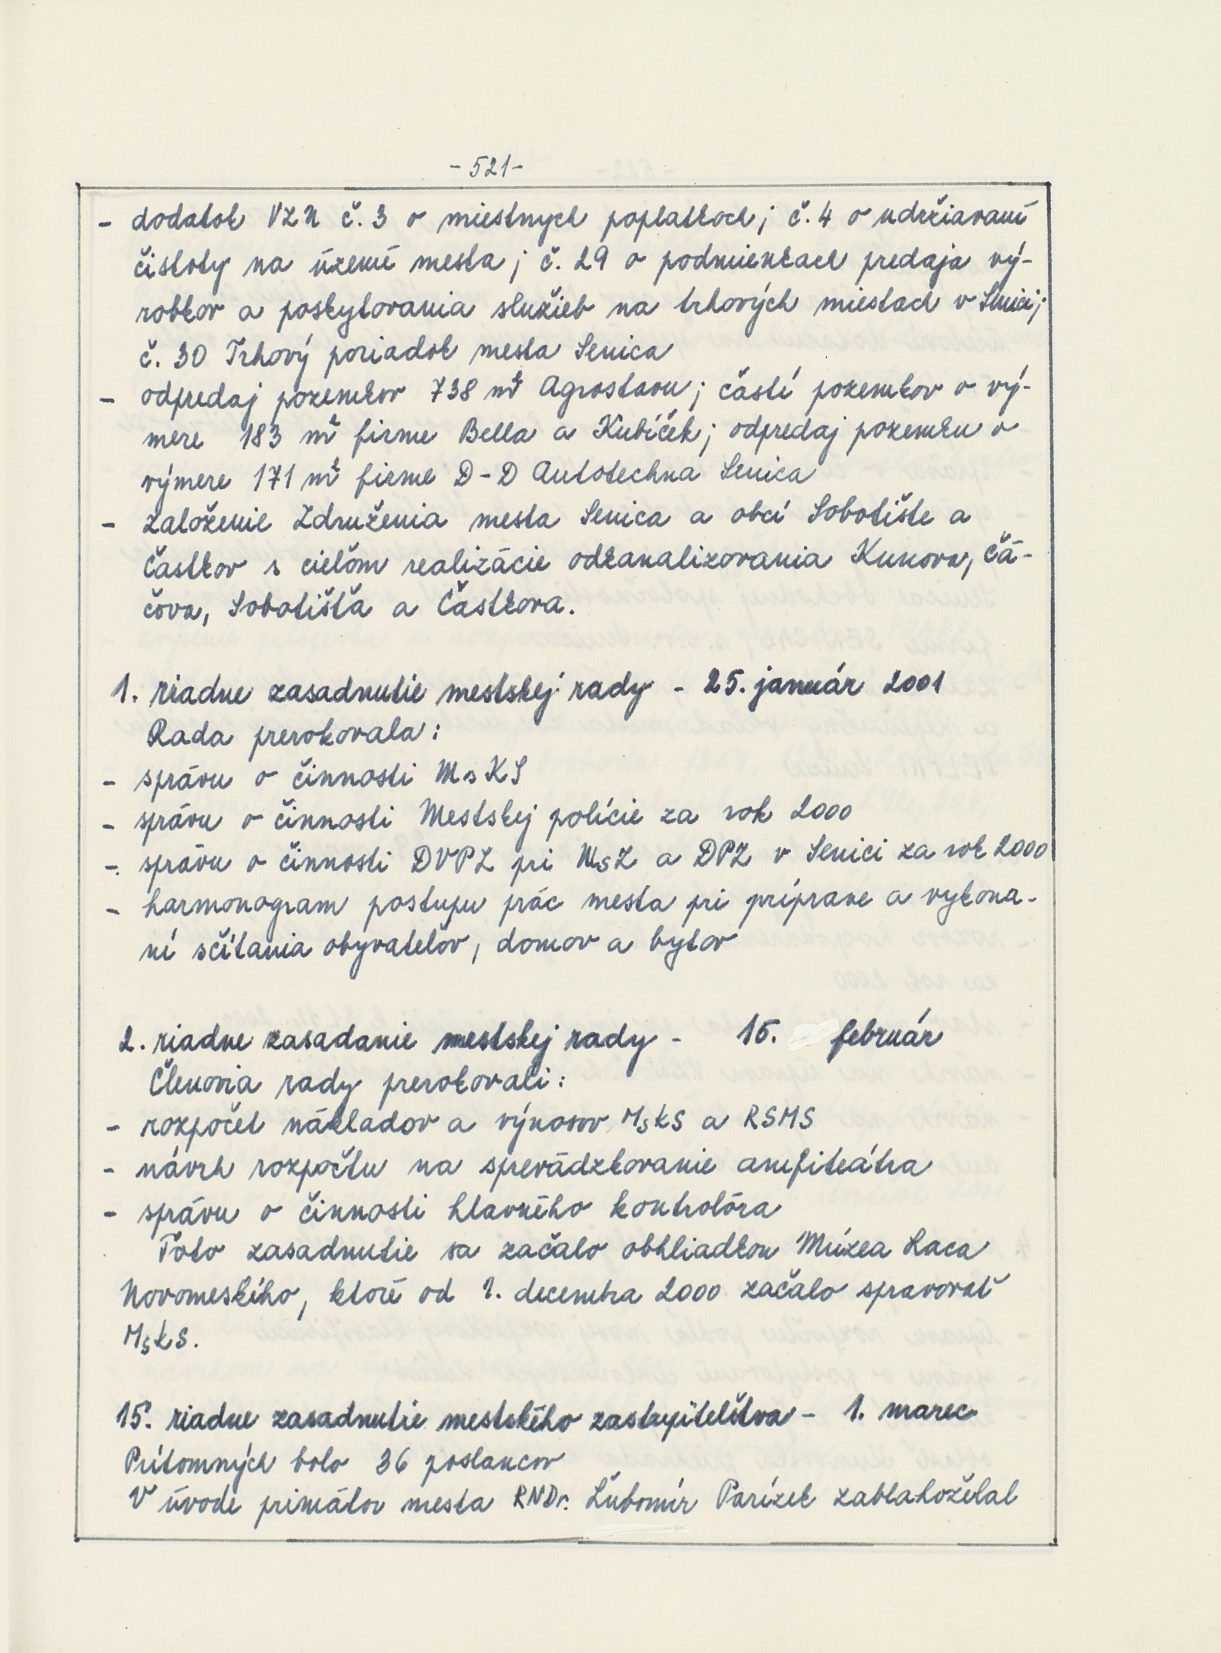 - 521 -
- dodatok VZN č. 3 o miestnych poplatkoch; č. 4 o udržiavaní
čistoty na území mesta; č. 29 o podmienkach predaja vý-
robkov a poskytovania služieb na trhových miestach v Senici;
č. 30 Trhový poriadok mesta Senica
- odpredaj pozemkov 738 m² Agrostavu; častí pozemkov o vý-
mere 183 m² firme Bella a Kubíček; odpredaj pozemku o
výmere 171 m² firme D-D Autotechna Senica
- založenie Združenia mesta Senica a obcí Sobotište a
Častkov s cieľom realizácie odkanalizovania Kunova, Čá-
čova, Sobotišťa a Častkova.
1. riadne zasadnutie mestskej rady - 25. január 2001
Rada prerokovala:
- správu o činnosti MsKS
- správu o činnosti Mestskej polície za rok 2000
- správu o činnosti DVPZ pri MsZ a DPZ v Senici za rok 2000
- harmonogram postupu prác mesta pri príprave a vykona-
ní sčítania obyvateľov, domov a bytov
2. riadne zasadanie mestskej rady - 15. február
Členovia rady prerokovali:
- rozpočet nákladov a výnosov MsKS a RSMS
- návrh rozpočtu na sprevádzkovanie amfiteátra
- správu o činnosti hlavného kontrolóra
Toto zasadnutie sa začalo obhliadkou Múzea Laca
Novomeského, ktoré od 1. decembra 2000 začalo spravovať
MsKS.
15. riadne zasadnutie mestského zastupiteľstva - 1. marec
Prítomných bolo 36 poslancov
V úvode primátor mesta RNDr. Ľubomír Parízek zablahoželal